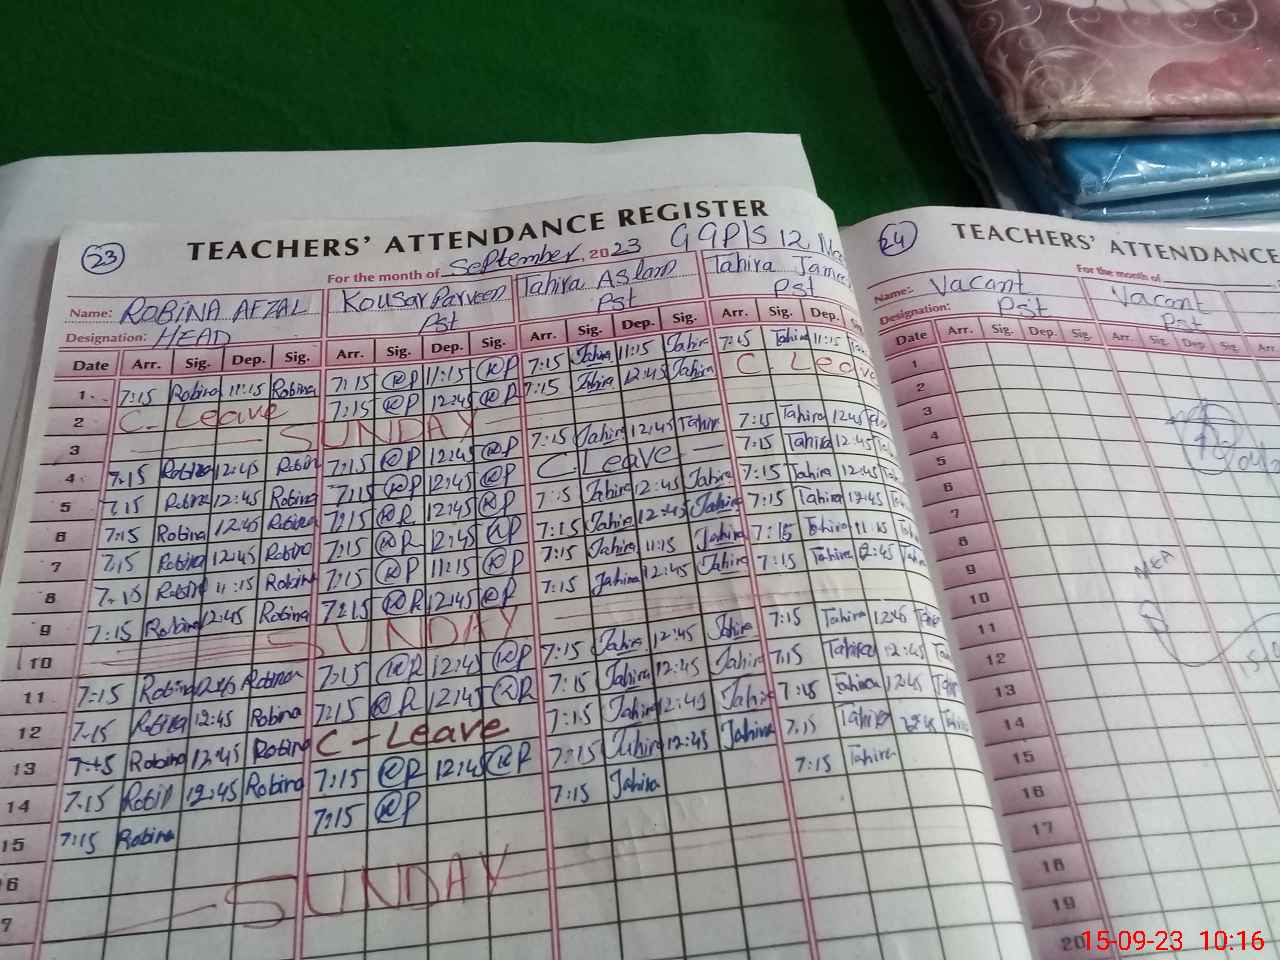 23
TEACHERS' ATTENDANCE REGISTER
For the month of September, 2023 GGP/S 12
Name: ROBINA AFZAL Kousar Parveen Tahira Aslam Tahira
Designation: HEAD Pst Pst Pst
Date Arr. Sig. Dep. Sig. Arr. Sig. Dep. Sig. Arr. Sig. Dep. Sig. Arr. Sig. Dep.
1 7:15 Robina 11:15 Robina 7:15 KP 11:15 KP 7:15 Tahira 11:15 Tahira 7:15 Tahira 11:15
2 C- Leave 7:15 KP 12:45 KP 7:15 Tahira 12:45 Tahira C. Leave
3 SUNDAY
4 7:15 Robina 12:45 Robin 7:15 KP 12:45 KP 7:15 Tahira 12:45 Tahira 7:15 Tahira 12:45
5 7:15 Robina 12:45 Robina 7:15 KP 12:45 KP C. Leave 7:15 Tahira 12:45
6 7:15 Robina 12:45 Robina 7:15 KP 12:45 KP 7:15 Tahira 12:45 Tahira 7:15 Tahira 12:45
7 7:15 Robina 12:45 Robina 7:15 KP 12:45 KP 7:15 Tahira 12:45 Tahira 7:15 Tahira 12:45
8 7:15 Robina 11:15 Robina 7:15 KP 11:15 KP 7:15 Tahira 11:15 Tahira 7:15 Tahira 11:15
9 7:15 Robina 12:45 Robina 7:15 KP 12:45 KP 7:15 Tahira 12:45 Tahira 7:15 Tahira 12:45
10 SUNDAY
11 7:15 Robina 12:45 Robina 7:15 KP 12:45 KP 7:15 Tahira 12:45 Tahira 7:15 Tahira 12:45
12 7:15 Robina 12:45 Robina 7:15 KP 12:45 KP 7:15 Tahira 12:45 Tahira 7:15 Tahira 12:45
13 7:15 Robina 12:45 Robina C-Leave 7:15 Tahira 12:45 Tahira 7:15 Tahira 12:45
14 7:15 Robin 12:45 Robina 7:15 KP 12:45 KP 7:15 Tahira 12:45 Tahira 7:15 Tahira 12:45
15 7:15 Robina 7:15 KP 7:15 Tahira 7:15 Tahira
6
7 SUNDAY
24
TEACHERS' ATTENDANCE
For the month of
Name: Vacant Vacant
Designation: Pst Pst
Date Arr. Sig. Dep. Sig. Arr. Sig. Dep. Sig. Arr.
1
2
3
4
5
6
7
8
9
10
11
12
13
14
15
16
17
18
19
20
15-09-23 10:16